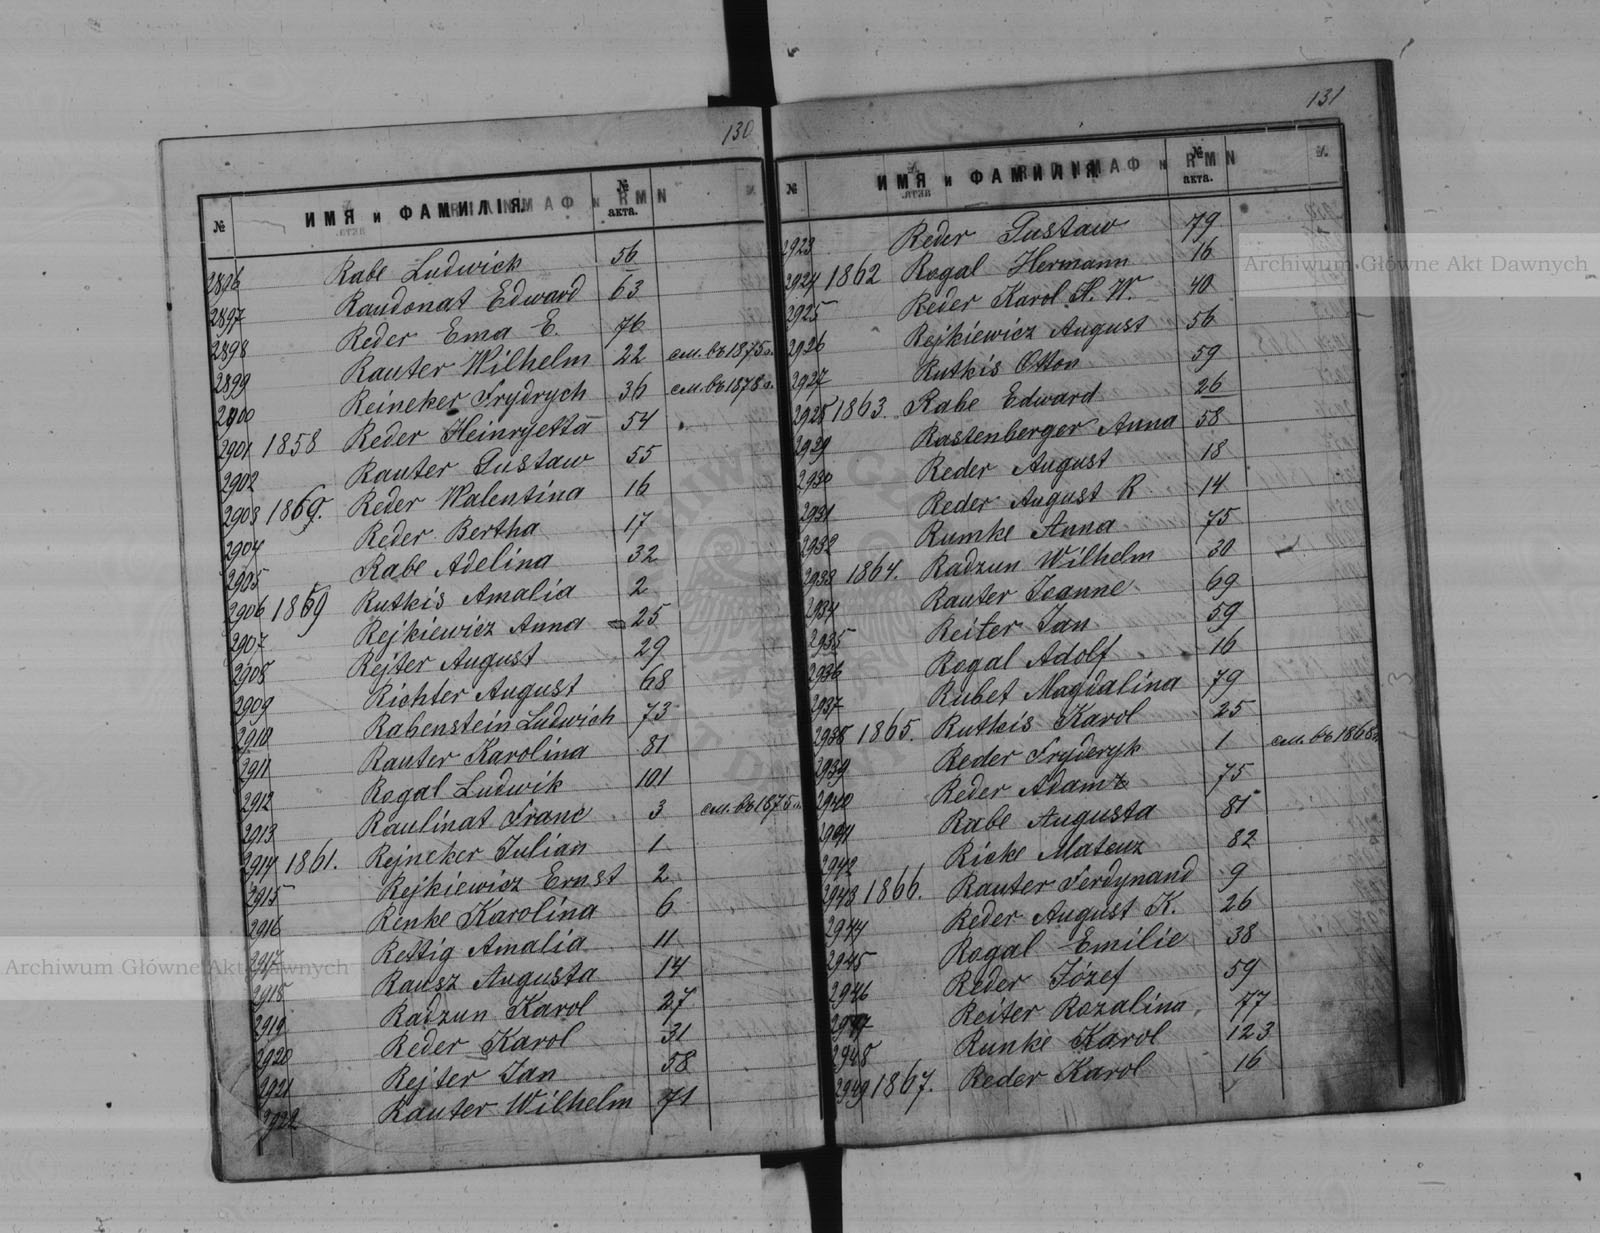 130
№ ИМЯ и ФАМИЛІЯ. № акта.
2896 Rabe Ludwich 56
2897 Raudonat Edward 63
2898 Reder Ema E. 76
2899 Rauter Wilhelm 22 см. въ 1875 г.
2900 Reineker Frydrych 36 см. въ 1878 г.
2901 1858 Reder Heinryetta 54
2902 Rauter Gustaw 55
2903 1869. Reder Walentina 16
2904 Reder Bertha 17
2905 Rabe Adelina 32
2906 1869 Rutkis Amalia 2
2907 Rejkiewicz Anna 25
2908 Rejter August 29
2909 Richter August 68
2910 Rabenstein Ludwich 73
2911 Rauter Karolina 81
2912 Rogal Ludwik 101
2913 Raulinat Franc 3 см. въ 1875 г.
2914 1861. Rejneker Julian 1
2915 Rejkiewicz Ernst 2
2916 Renke Karolina 6
2917 Rettig Amalia 11
2918 Rausz Augusta 14
2919 Radzun Karol 27
2920 Reder Karol 31
2921 Rejter Jan 58
2922 Rauter Wilhelm 71
131
№ ИМЯ и ФАМИЛІЯ № акта.
2923 Reder Gustaw 79
2924 1862 Rogal Hermann 16
2925 Reder Karol H. W. 40
2926 Rejkiewicz August 56
2927 Rutkis Otton 59
2928 1863. Rabe Edward 26
2929 Rastenberger Anna 58
2930 Reder August 18
2931 Reder August R 14
2932 Rumke Anna 75
2933 1864. Radzun Wilhelm 30
2934 Rauter Joanne 69
2935 Reiter Jan 59
2936 Rogal Adolf 16
2937 Rubet Magdalina 79
2938 1865. Rutkis Karol 25
2939 Reder Fryderyk 1 см. въ 1868 г.
2940 Reder Adam 75
2941 Rabe Augusta 81
2942 Ricke Mateusz 82
2943 1866. Rauter Ferdynand 9
2944 Reder August K. 26
2945 Rogal Emilie 38
2946 Reder Józef 59
2947 Reiter Rozalina 77
2948 Runke Karol 123
2949 1867. Reder Karol 16
Archiwum Główne Akt Dawnych
Archiwum Główne Akt Dawnych